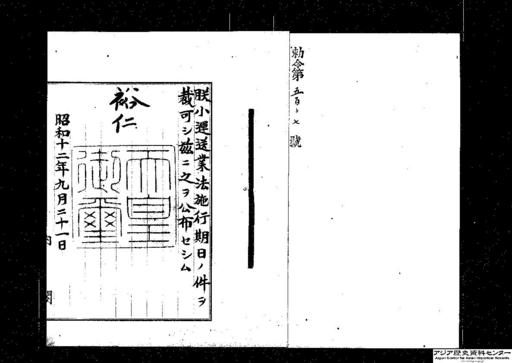 勅令第五百七號
朕小運送業法施行期日ノ件ヲ
裁可シ茲ニ之ヲ公布セシム
裕仁
天皇
御璽
昭和十二年九月二十一日
内閣
アジア歴史資料センター
Japan Center for Asian Historical Records